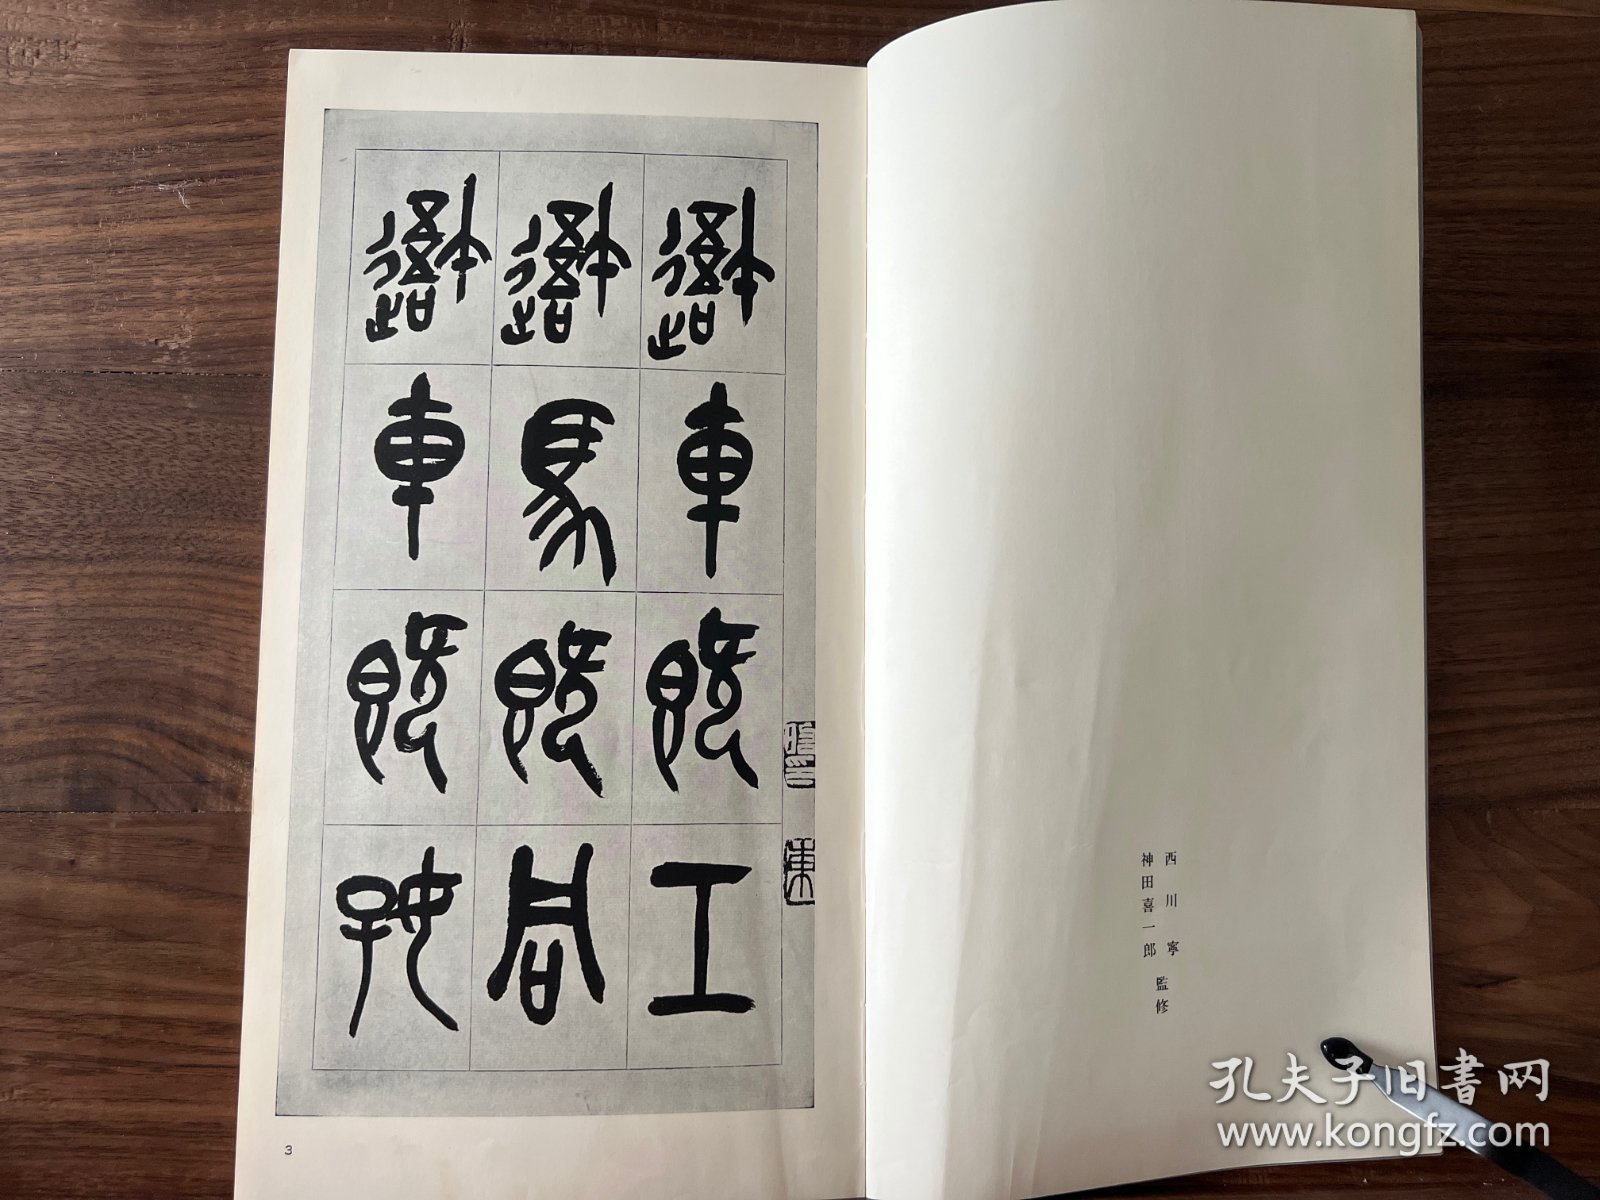 吾車既工
吾馬既同
吾車既好
3
西川寧
神田喜一郎
監修
孔夫子旧書网
www.kongfz.com